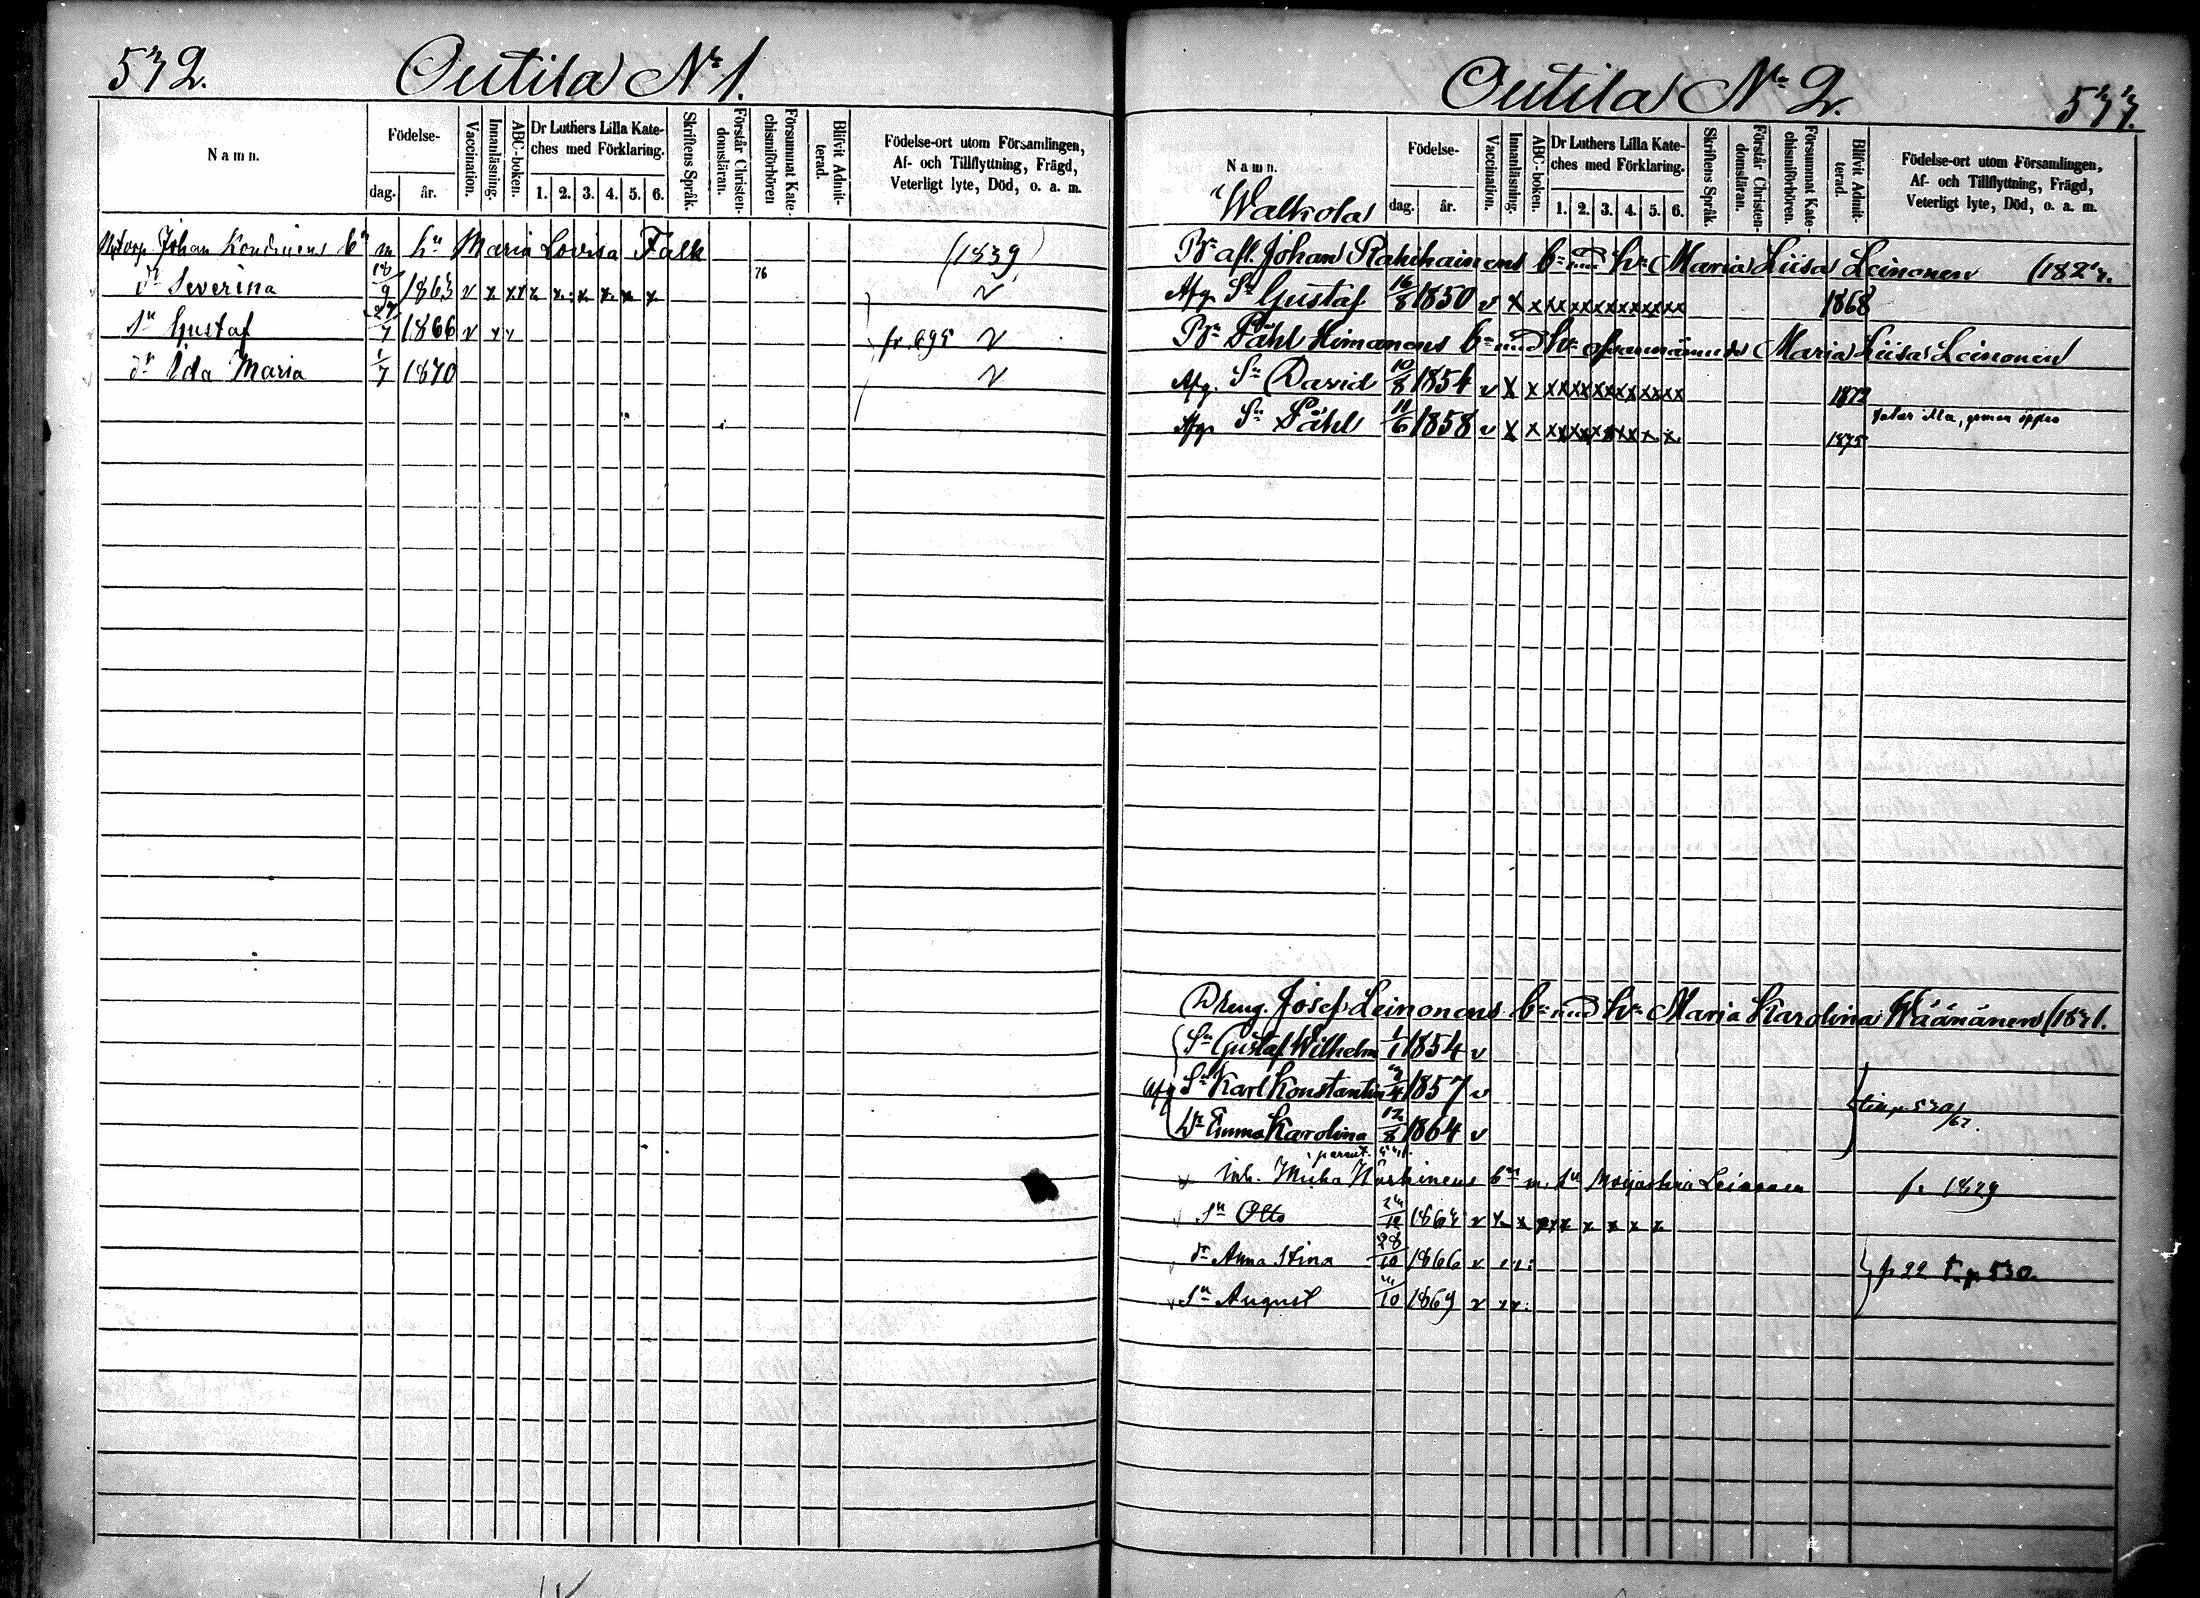 532.
Outila No 1.
Namn.
Födelse-
dag.
år.
Vaccination.
Innanläsning.
ABC-boken.
Dr Luthers Lilla Kate-
ches med Förklaring.
1. 2. 3. 4. 5. 6.
Skriftens Språk.
Förstår Christen-
domsläran.
Försummat Kate-
chismiförhören
Blifvit Admit-
terad.
Födelse-ort utom Församlingen,
Af- och Tillflyttning, Frägd,
Veterligt lyte, Död, o. a. m.
Johan Kondinens bn m hu Maria Lovisa Falk (1839)
dr Severina 18/9 1863 v x xx x x x x x x 76 v
sn Gustaf 27/7 1866 v x x fr. 695 v
dr Ida Maria 1/7 1870 v
Outila No 2.
533.
Namn.
Walkola
Födelse-
dag.
år.
Vaccination.
Innanläsning.
ABC-boken.
Dr Luthers Lilla Kate-
ches med Förklaring.
1. 2. 3. 4. 5. 6.
Skriftens Språk.
Förstår Christen-
domsläran.
Försummat Kate-
chismiförhören.
Blifvit Admit-
terad.
Födelse-ort utom Församlingen,
Af- och Tillflyttning, Frägd,
Veterligt lyte, Död, o. a. m.
Bn afl. Johan Rahikainens bn med hu Maria Liisa Leinonen
Afg. Sn Gustaf 16/8 1850 v x xx xx xx xx xx xx 1868
Bn Påhl Himanens bn med hu Maria Liisa Leinonen
Afg. Sn David 10/8 1854 v x x xx xx xx xx xx xx 1872
talar illa,
Afg. Sn Påhl 11/6 1858 v x x xx xx xx xx x x 1875
Dreng. Josef Leinonens bn med hu Maria Karolina Wäänänen (1831.
Sn Gustaf Wilhelm 1/1 1854 v
Afg Sn Karl Konstantin 2/4 1857 v
Dr Emma Karolina 12/8 1864 v
till p. 530/67.
inh. Bn m. Leinonen f. 1829
sn Otto 24/12 v x x xxx x x x x
dr Anna Stina 28/10 1866 v x x
sn August 1869 v x x
fr 22 T. p. 530.